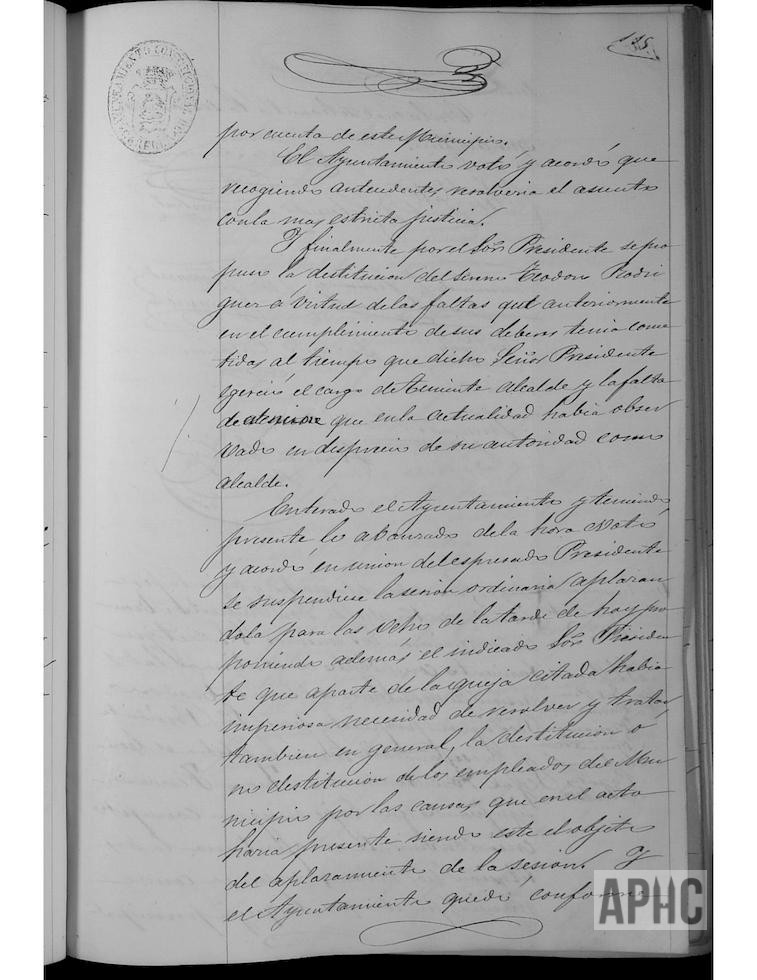 115
AYUNTAMIENTO CONSTITUCIONAL
por cuenta de este Municipio.
El Ayuntamiento votó y acordó que
recogiendo antecedentes resolveria el asunto
con la mas estricta justicia.
Y finalmente por el Sor Presidente se pro
puso la destitucion del sereno Teodoro Rodri
guez á virtud de las faltas que anteriormente
en el cumplimiento de sus deberes tenia come
tidas al tiempo que dicho Señor Presidente
egerció el cargo de teniente Alcalde y la falta
de atencion que en la actualidad habia obser
vado en desprecio de su autoridad como
Alcalde.
Enterado el Ayuntamiento y teniendo
presente lo abanzado de la hora votó
y acordó en union del espresado Presidente
se suspendiese la sesion ordinaria aplazan
dola para las ocho de la tarde de hoy pro
poniendo además el indicado Sor Presiden
te que aparte de la queja citada habia
imperiosa necesidad de resolver y tratar
tambien en general, la destitucion ó
no destitucion de los empleados del Mu
nicipio por las causas que en el acto
haria presente siendo este el objeto
del aplazamiento de la sesion. Y
el Ayuntamiento quedó conforme
APHC